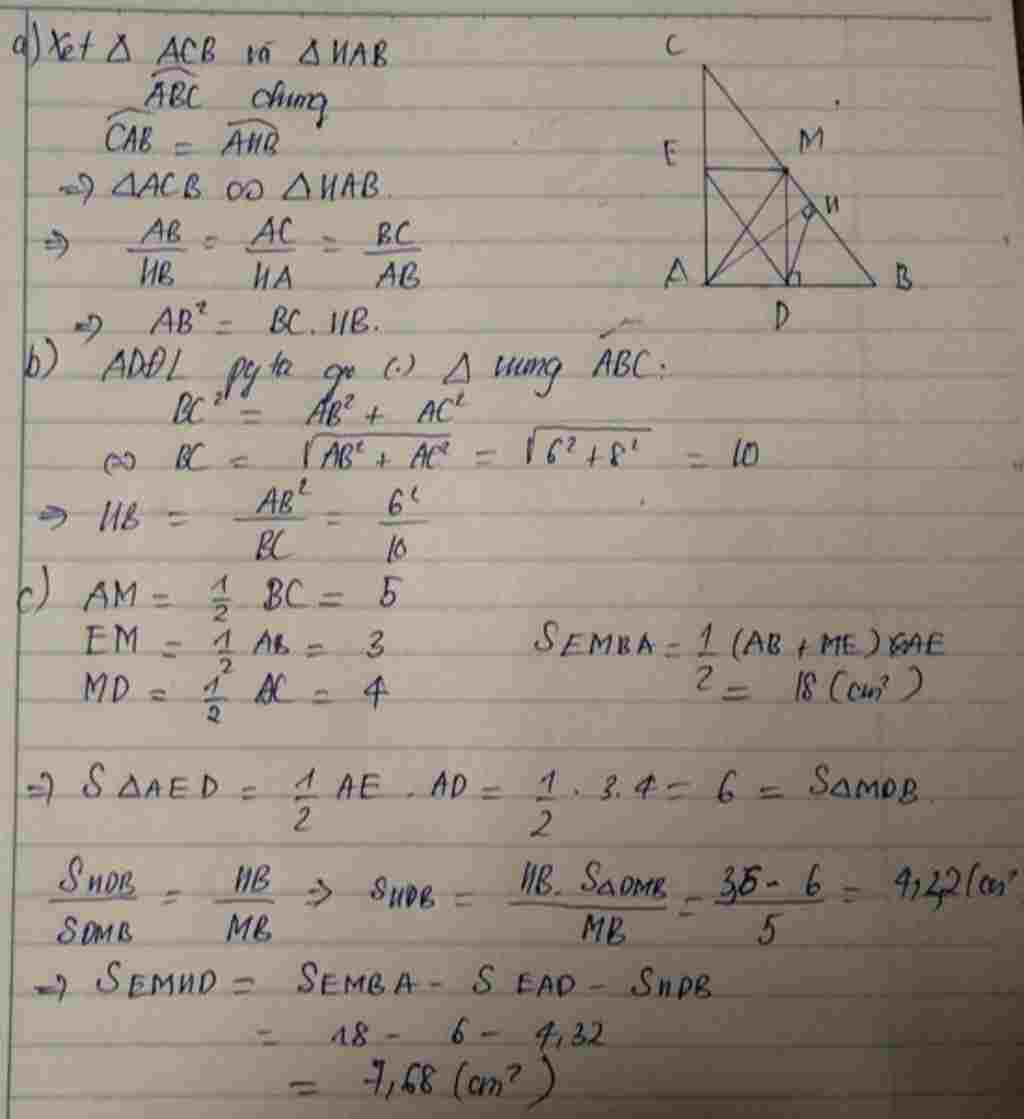 a) Xet Δ ACB và Δ HAB
ABC chung
CAB = AHB
=> ΔACB ∞ ΔHAB.
=> AB/HB = AC/HA = BC/AB
=> AB² = BC.HB.
b) ADĐL pyta go (.) Δ vuong ABC:
BC² = AB² + AC²
∞ BC = √AB² + AC² = √6² + 8² = 10
=> HB = AB²/BC = 6²/10
c) AM = 1/2 BC = 5
EM = 1/2 AB = 3
MD = 1/2 AC = 4
S EMBA = 1/2 (AB + ME) AE
= 18 (cm²)
=> S ΔAED = 1/2 AE . AD = 1/2 . 3. 4 = 6 = SΔMDB.
S HDB/S DMB = HB/MB => S HDB = HB. SΔDMB/MB = 3,6 - 6/5 = 4,32 (cm²
=> S EMHD = S EMBA - S EAD - S HDB
= 18 - 6 - 4,32
= 7,68 (cm²)
C
E
M
H
A
B
D